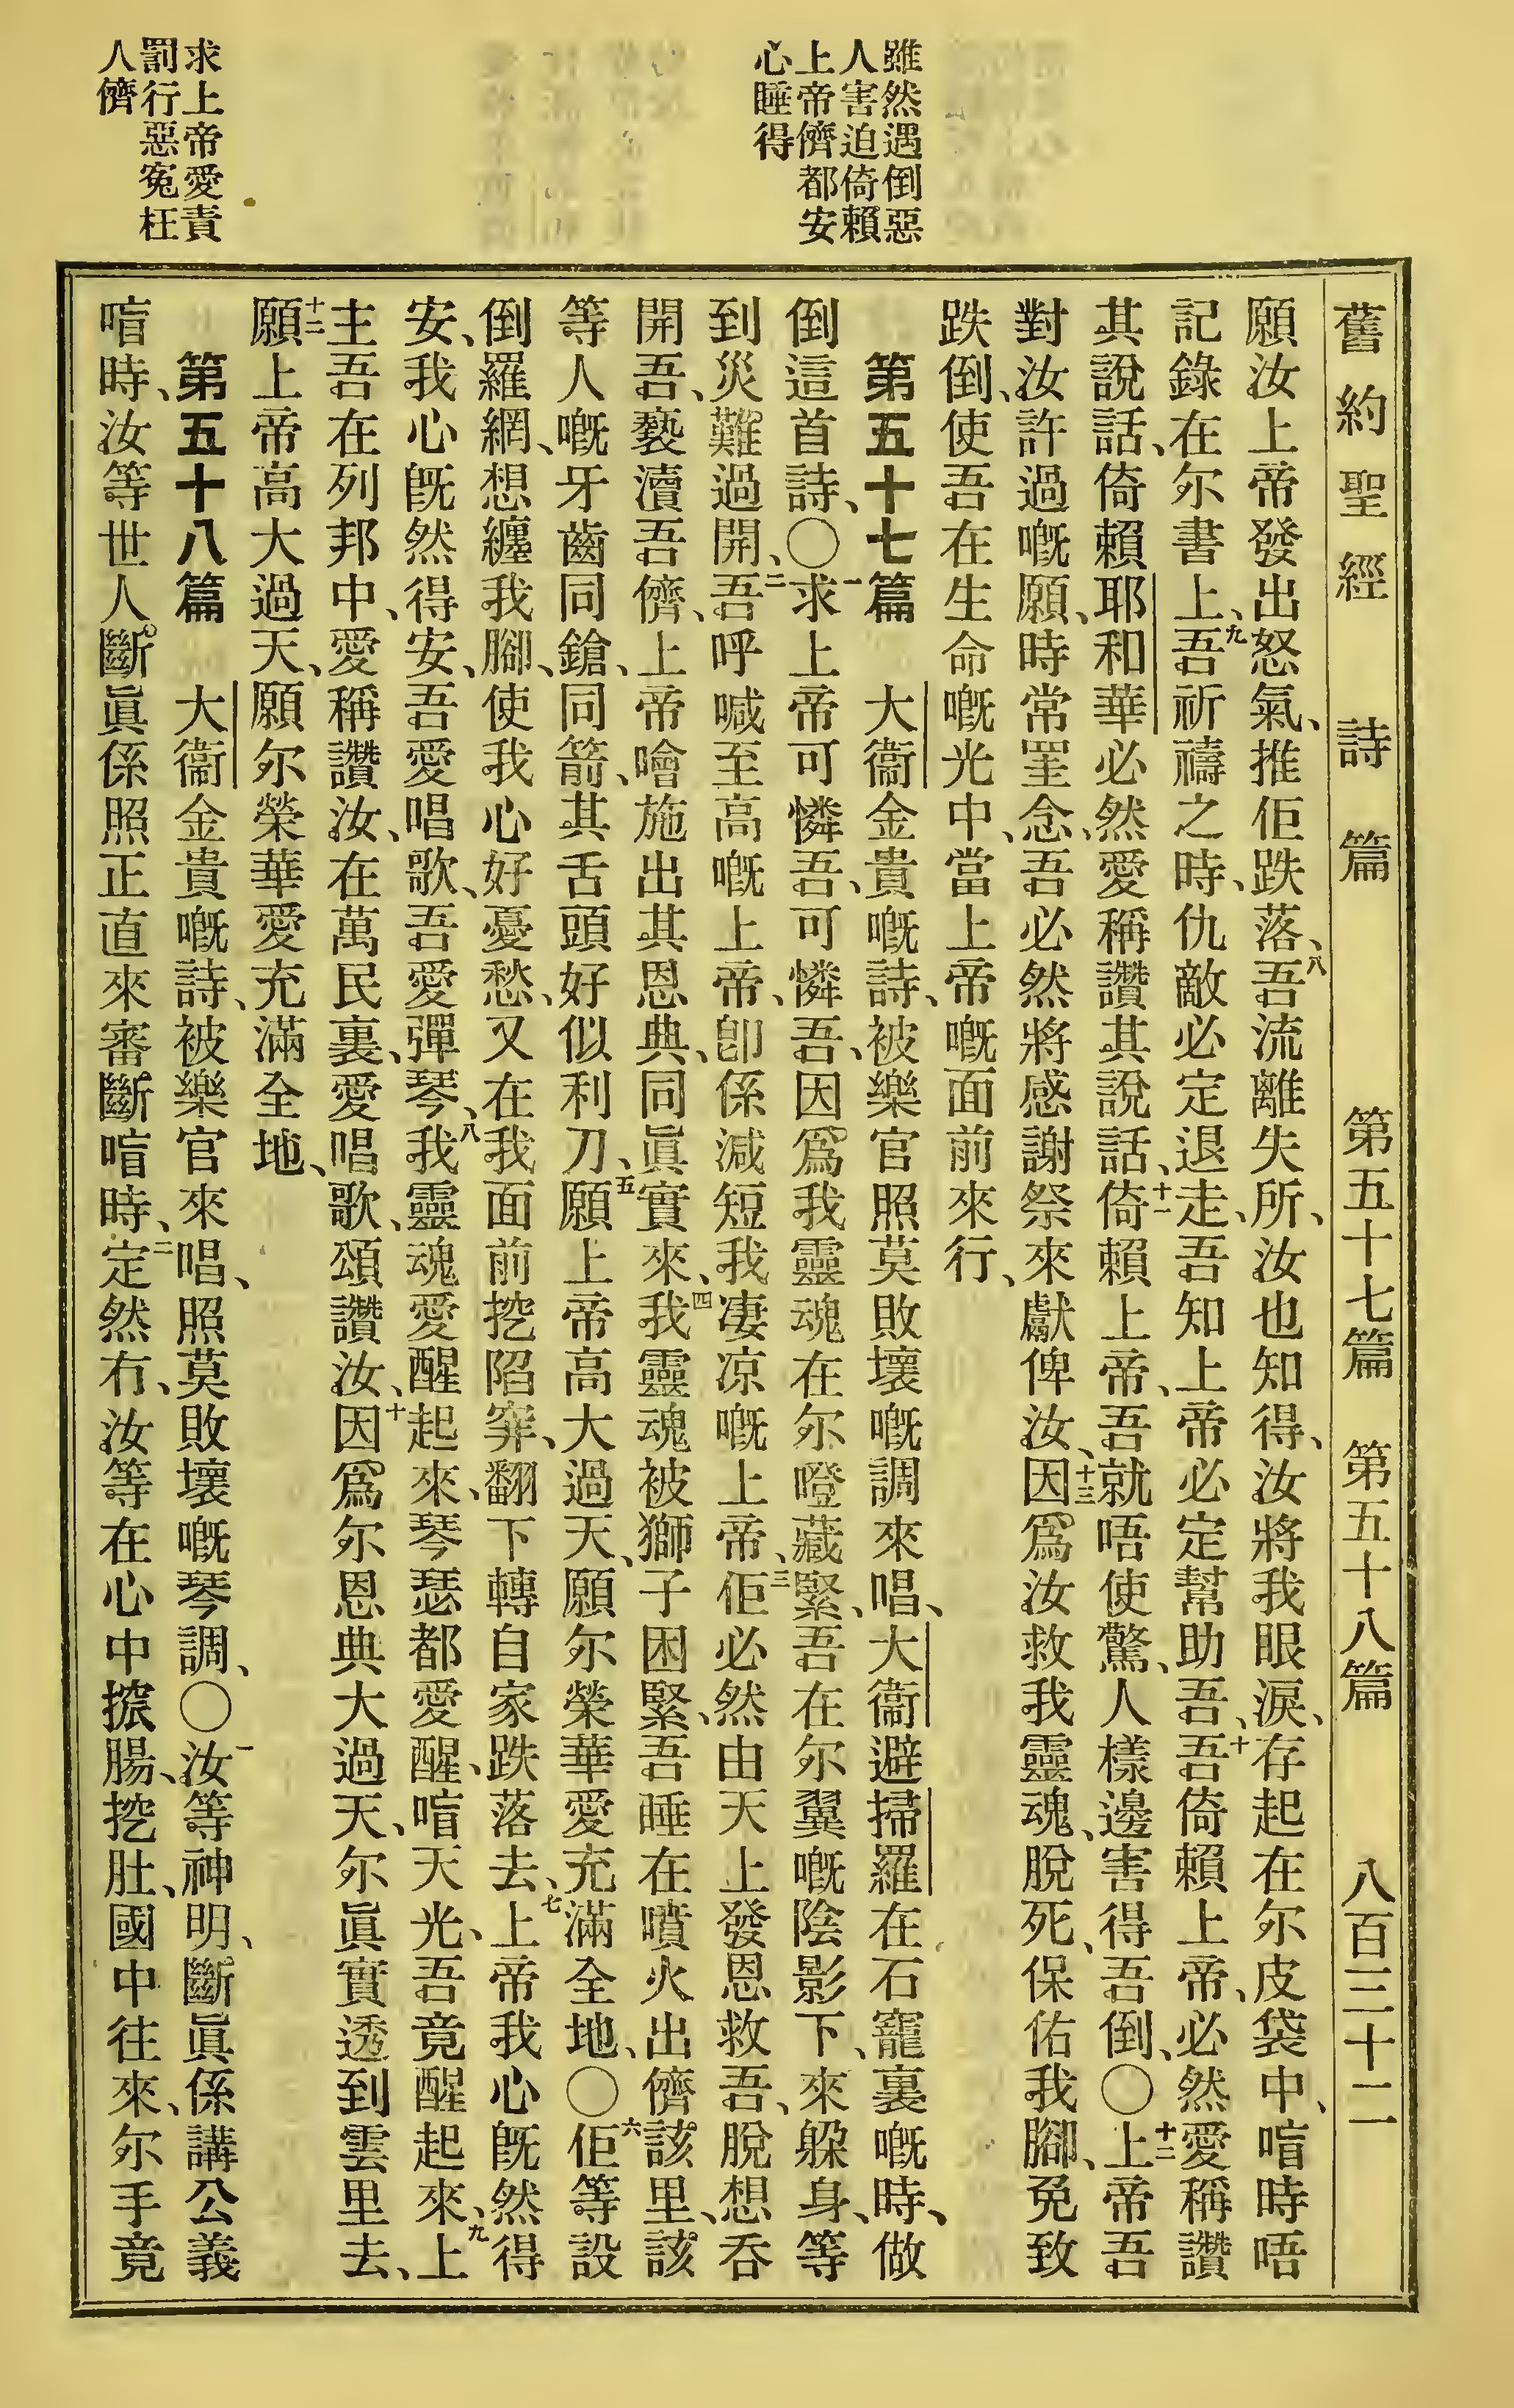 舊約聖經 詩篇 第五十七篇 第五十八篇 八百三十二
雖然遇倒惡
人害迫倚賴
上帝儕都安
心睡得
求上帝愛責
罰行惡寃枉
人儕
願汝上帝發出怒氣、推佢跌落、八吾流離失所、汝也知得、汝將我眼淚、存起在尔皮袋中、㫮時唔
記錄在尔書上、九吾祈禱之時、仇敵必定退走、吾知上帝必定幫助吾、十吾倚賴上帝、必然愛稱讚
其說話、倚賴耶和華必然愛稱讚其說話、十一倚賴上帝、吾就唔使驚、人樣邊害得吾倒、〇十二上帝吾
對汝許過嘅願、時常罣念、吾必然將感謝祭來獻俾汝、十三因爲汝救我靈魂、脫死、保佑我腳、免致
跌倒、使吾在生命嘅光中、當上帝嘅面前來行、
第五十七篇 大衞金貴嘅詩、被樂官照莫敗壞嘅調來唱、大衞避掃羅在石窿裏嘅時、做
倒這首詩、〇一求上帝可憐吾、可憐吾、因爲我靈魂在尔噔藏緊、吾在尔翼嘅陰影下、來躲身、等
到災難過開、二吾呼喊至高嘅上帝、卽係減短我凄凉嘅上帝、三佢必然由天上發恩救吾、脫想吞
開吾、褻瀆吾儕、上帝噲施出其恩典、同眞實來、四我靈魂被獅子困緊、吾睡在噴火出儕該里、該
等人嘅牙齒同鎗、同箭、其舌頭好似利刀、五願上帝高大過天、願尔榮華愛充滿全地、〇六佢等設
倒羅網、想纏我腳、使我心好憂愁、又在我面前挖陷穽、翻下轉自家跌落去、七上帝我心旣然得
安、我心旣然得安、吾愛唱歌、吾愛彈琴、八我靈魂愛醒起來、琴瑟都愛醒、㫮天光、吾竟醒起來、九上
主吾在列邦中、愛稱讚汝、在萬民裏、愛唱歌、頌讚汝、十因爲尔恩典大過天、尔眞實透到雲里去、
十二願上帝高大過天、願尔榮華愛充滿全地、
第五十八篇 大衞金貴嘅詩、被樂官來唱、照莫敗壞嘅琴調、〇一汝等神明、斷眞係講公義
㫮時、汝等世人斷眞係照正直來審斷㫮時、二定然冇、汝等在心中挔腸、挖肚、國中往來、尔手竟